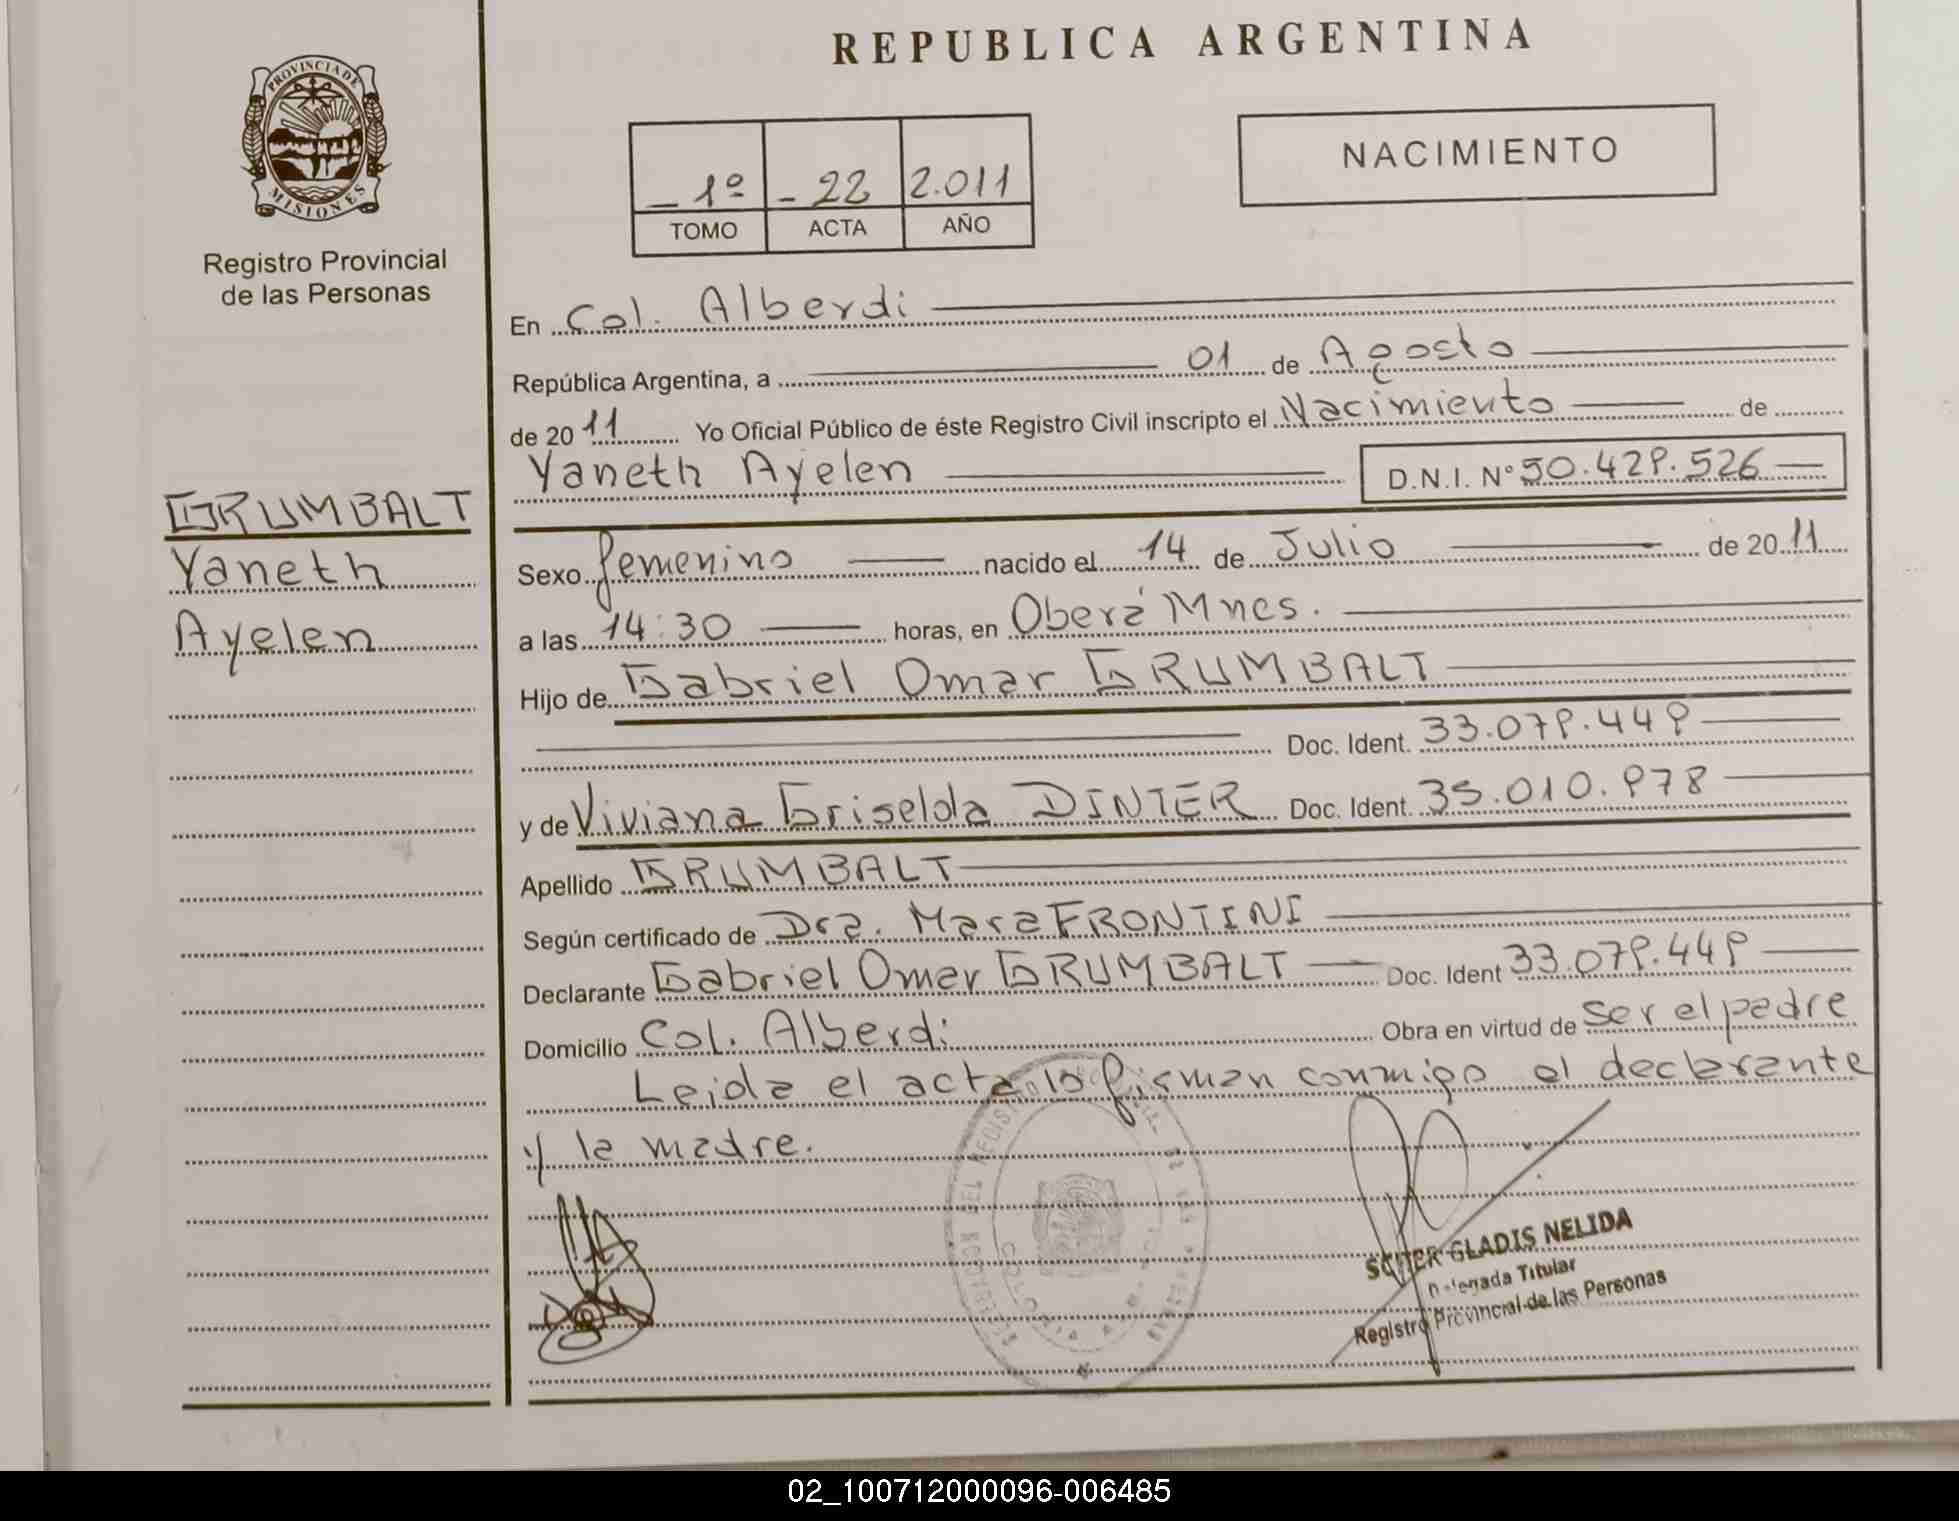 REPUBLICA ARGENTINA
PROVINCIA DE
MISIONES
Registro Provincial
de las Personas
1º - 22 2.011
TOMO ACTA AÑO
NACIMIENTO
En Col. Alberdi
República Argentina, a 01 de Agosto
de 2011 Yo Oficial Público de éste Registro Civil inscripto el Nacimiento de
Yaneth Ayelen D.N.I. Nº 50.429.526
GRUMBALT
Yaneth
Ayelen
Sexo femenino nacido el 14 de Julio de 2011
a las 14:30 horas, en Oberá Mnes.
Hijo de Gabriel Omar GRUMBALT
Doc. Ident. 33.079.449
y de Viviana Griselda DINTER Doc. Ident. 35.010.978
Apellido GRUMBALT
Según certificado de Dra. Mara FRONTINI
Declarante Gabriel Omar GRUMBALT Doc. Ident 33.079.449
Domicilio Col. Alberdi Obra en virtud de ser el padre
Leida el acta la firman conmigo el declarante
y la madre.
GLADIS NELIDA
Delegada Titular
Registro Provincial de las Personas
02_100712000096-006485